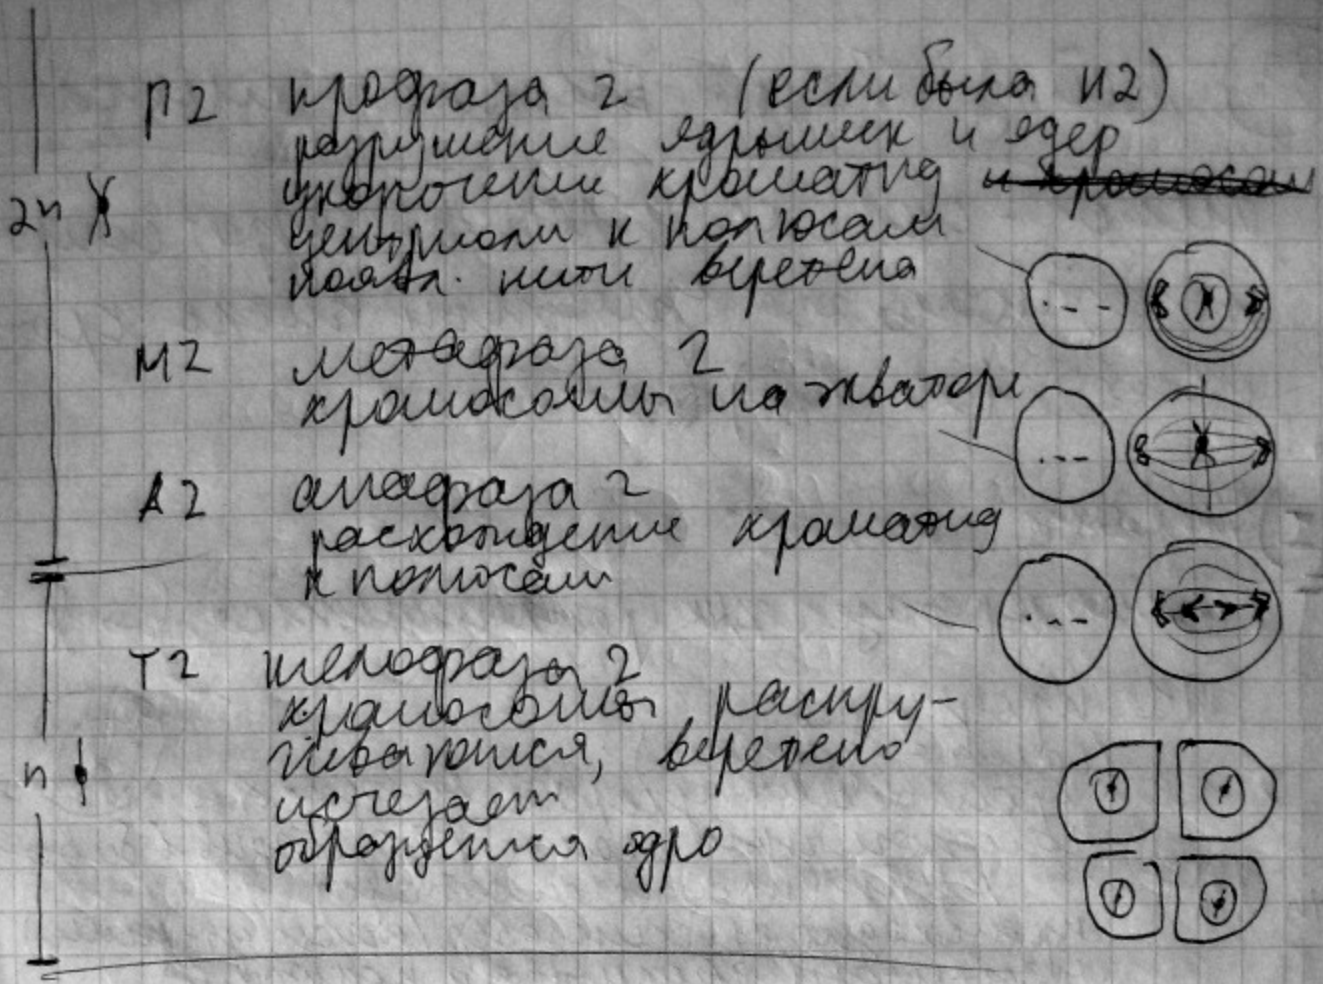 П2 профаза 2 (если была И2)
разрушение ядрышек и ядер
укорочение хроматид и хромосом
2n
центриоли к полюсам
появл. нити веретена
М2 метафаза 2
хромосомы на экваторе
А2 анафаза 2
расхождение хроматид
к полюсам
Т2 телофаза 2
хромосомы раскру-
чиваются, веретено
n
исчезает
образуется ядро